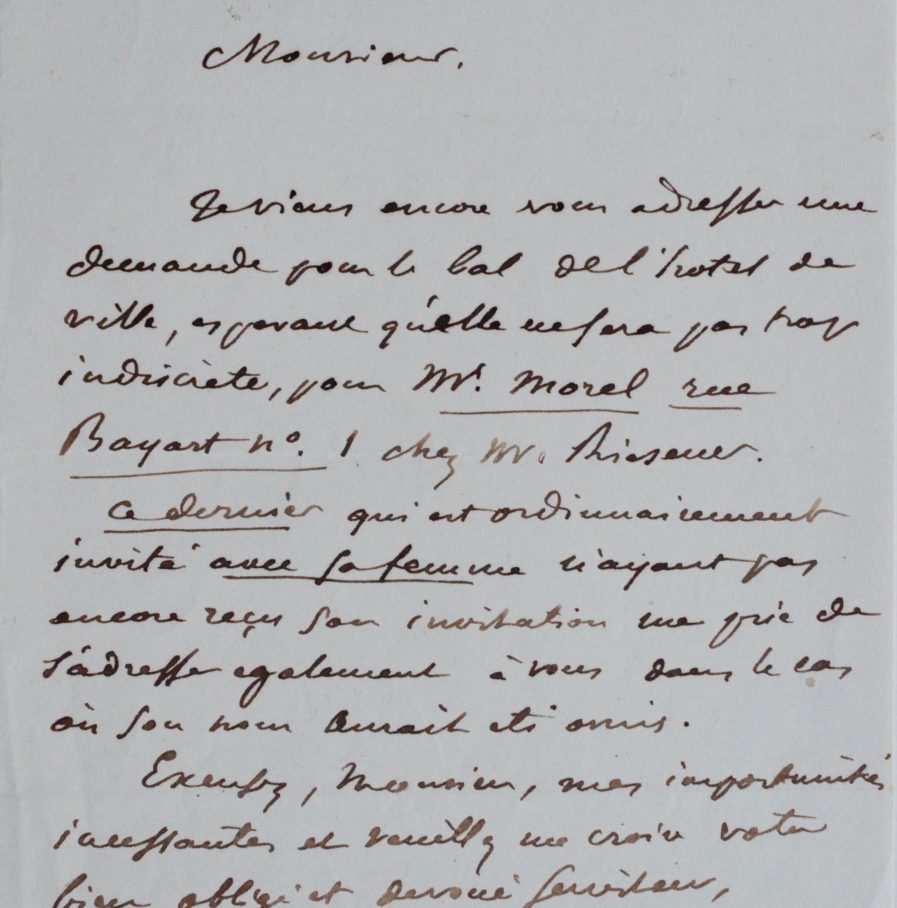 Monsieur.
Je viens encore vous adresser une
demande pour le bal de l'hotel de
ville, esperant qu'elle ne sera pas trop
indiscrète, pour Mr. Morel rue
Bayart no. 1 chez Mr. Riesener.
Ce dernier qui est ordinnairement
invité avec sa femme n'ayant pas
encore reçu son invitation me prie de
s'adresse egalement à vous dans le cas
où son nom aurait eté omis.
Excusez, Monsieur, mes importunités
incessantes et veuillez me croire votre
bien obligé et devoué serviteur,